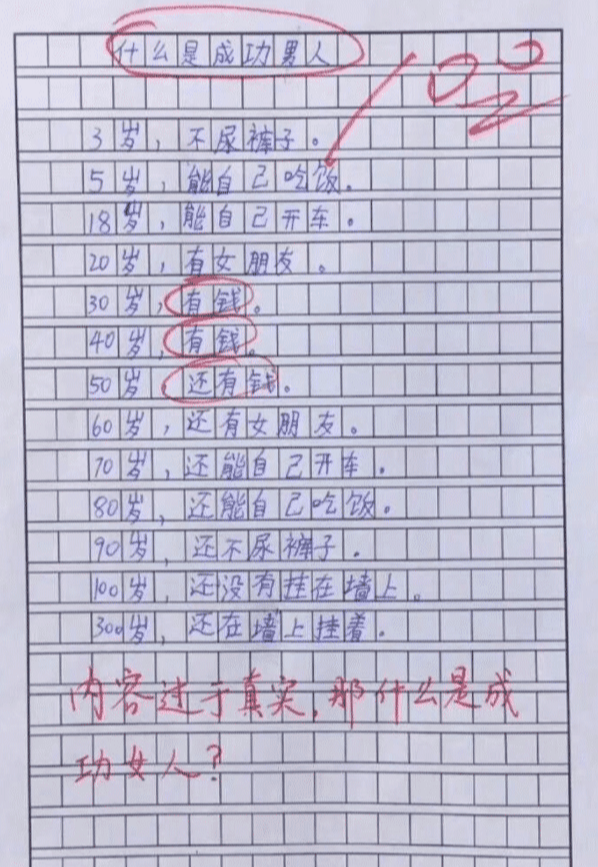 什么是成功男人
100
3岁，不尿裤子。
5岁，能自己吃饭。
18岁，能自己开车。
20岁，有女朋友。
30岁，有钱。
40岁，有钱。
50岁，还有钱。
60岁，还有女朋友。
70岁，还能自己开车。
80岁，还能自己吃饭。
90岁，还不尿裤子。
100岁，还没有挂在墙上。
300岁，还在墙上挂着。
内容过于真实，那什么是成
功女人？